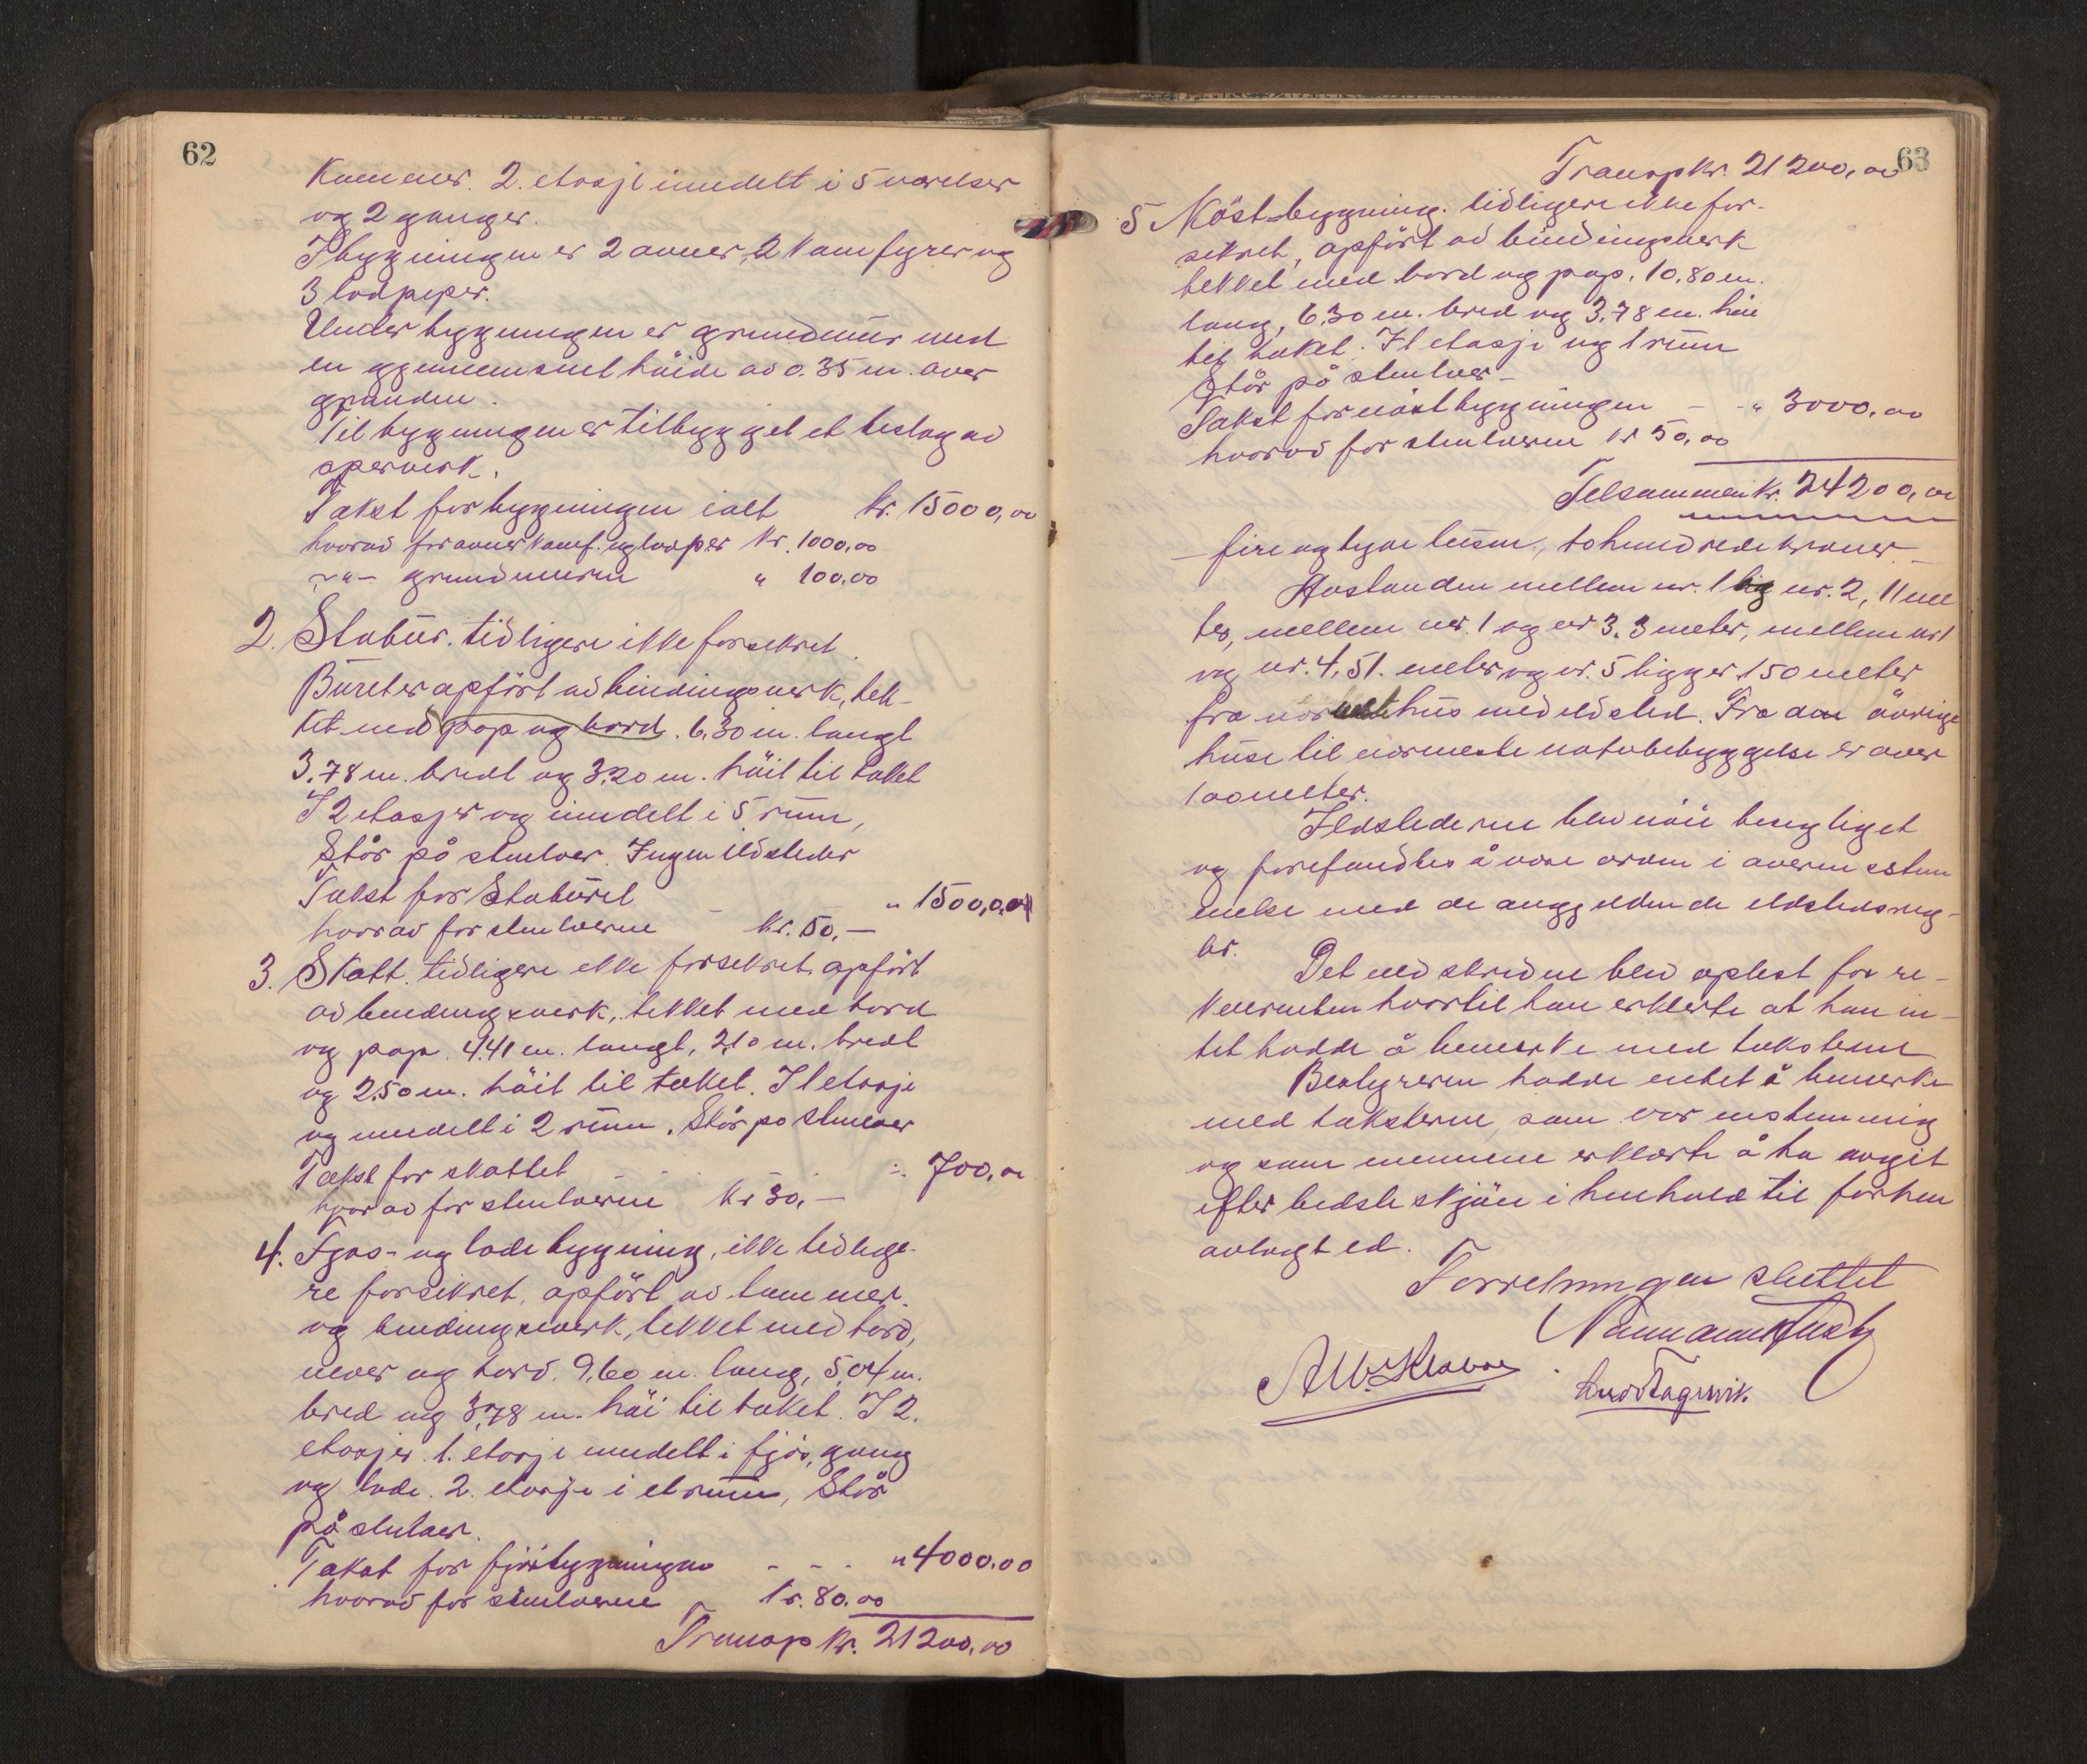 62
Kammer. 2. etasje inndelt i 5 værelser
og 2 ganger.
I bygningen er 2 ovner, 2 kamfyrer og
3 lodpiper.
Under bygningen er grundmur med
en gjennemsnitl höide av 0.35 m. over
grunden.
Til bygningen er tilbygget et bislag av
sperverk.
Takst for bygningen ialt kr. 15000,00
hvorav for ovner kamf. og lodp:er Kr. 1000,00
-"- grundmuren " 100.00
2. Stabur. tidligere ikke forsikret.
Buret er opfört av bindingsverk, tek-
ket med pap og bord. 6,30 m. langt
3.78 m. bredt og 3.20 m. höit til taket
I 2 etasjer og inndelt i 5 rum,
Står på stenloer. Ingen ildsteder
Takst for Staburet - " 1500,00
hvorav for stenloerne kr. 50,-
3. Skott. tidligere ikke forsikret, opfört
av bindingsverk, tekket med bord
og pap. 4.41 m. langt, 2,10 m. bredt
og 2.50 m. höit til taket. I 1 etasje
og inndelt i 2 rum. Står på stenloer
Takst for skottet - - " 700,00
hvorav for stenloerne kr 30,-
4. Fjøs- og ladebygning, ikke tidlige-
re forsikret, opfört av tømmer
og bindingsverk, tekket med bord,
never og bord. 9,60 m. lang, 5,04 m.
bred og 3,78 m. höi til taket. I 2.
etasjer. 1. etasje inndelt i fjøs, gang
og lade. 2. etasje i et rum, Står
på stenloer.
Takst for fjösbygningen - - - " 4000.00
hvorav for stenloerne kr. 80.00
Transp kr. 21200,00
63
Transp kr. 21200,00
5 Nöstbygning. tidligere ikke for-
sikret, opfört av bindingsverk
tekket med bord og pap. 10,80 m.
lang, 6,30 m. bred og 3,78 m. höi
til taket. I 1 etasje og 1 rum
Står på stenloer -
Takst for nöstbygningen - - " 3000,00
hvorav for stenloerne kr 50,00
Tilsammen kr. 24200,00
- fire og tyve tusen, to hundrede kroner. -
Avstanden mellem nr. 1 og nr. 2, 11 me
ter, mellem nr. 1 og nr 3. 3 meter, mellem nr 1
og nr. 4, 51. meter, og nr. 5 ligger 150 meter
fra nærmeste hus med ildsted. Fra de övrige
huse til nærmeste nabobebyggelse er over
100 meter.
Ildstederne blev nöie besigtiget
og forefandtes å være orden i overensstem
melse med de angjeldende ildstedsreg-
ler.
Det nedskrevne blev oplest for re-
kvirenten hvortil han erklerte at han in-
tet hadde å bemerke med taksterne
Bestyreren hadde intet å bemerke
med taksterne, som var enstemmig
og som mennene erklærte å ha avgit
efter bedste skjön i henhold til forhen
avlagt ed.
Forretningen sluttet